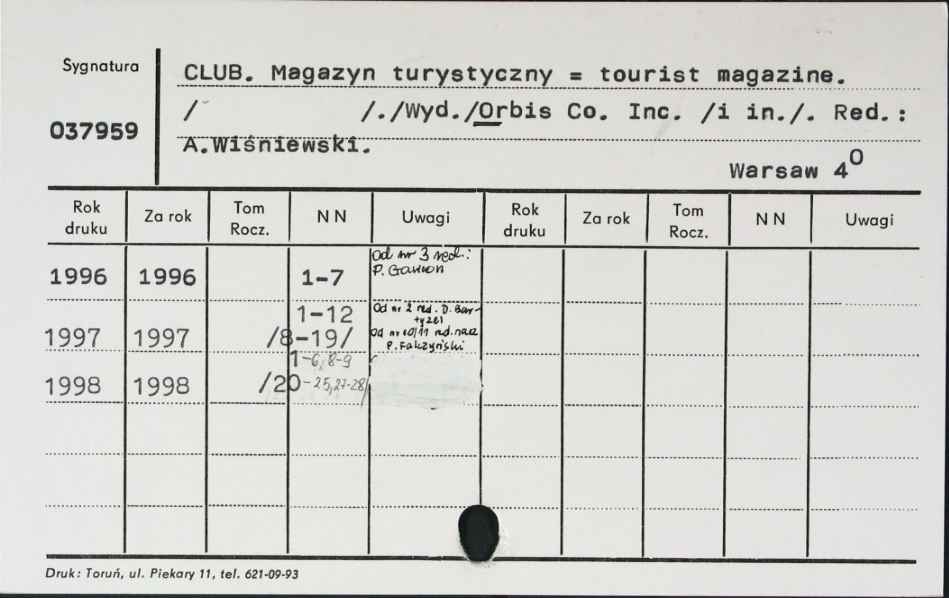 Sygnatura
037959
CLUB. Magazyn turystyczny = tourist magazine.
/ /./Wyd./Orbis Co. Inc. /i in./. Red.:
A.Wiśniewski.
Warsaw 4⁰
Rok druku Za rok Tom Rocz. N N Uwagi Rok druku Za rok Tom Rocz. N N Uwagi
Od nr 3 red.:
1996 1996 1-7 P.
1-12 Od nr 2 red. D. Bar-
tyzel
1997 1997 /8-19/ Od nr 10/11 red. nacz
P. Fałczyński
1-6, 8-9
1998 1998 /20-25,27-28/
Druk: Toruń, ul. Piekary 11, tel. 621-09-93